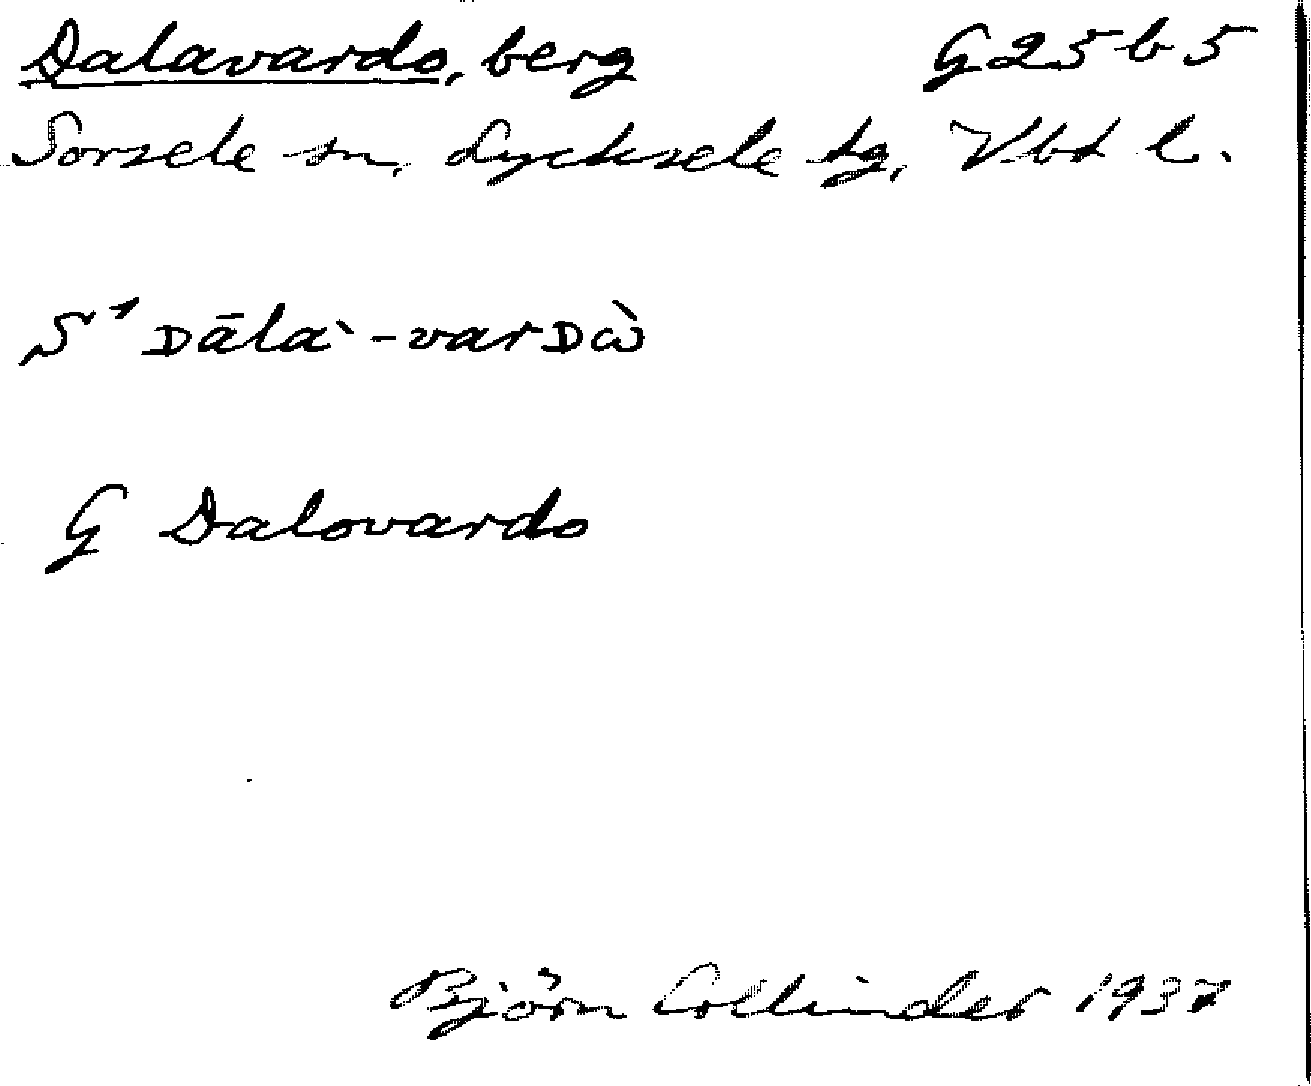 Dalavardo, berg G25b5
Sorsele sn, Lycksele tg, Vbt l.
S¹ ᴅāla`-varᴅὼ
G Dalovardo
Björn Collinder 1937